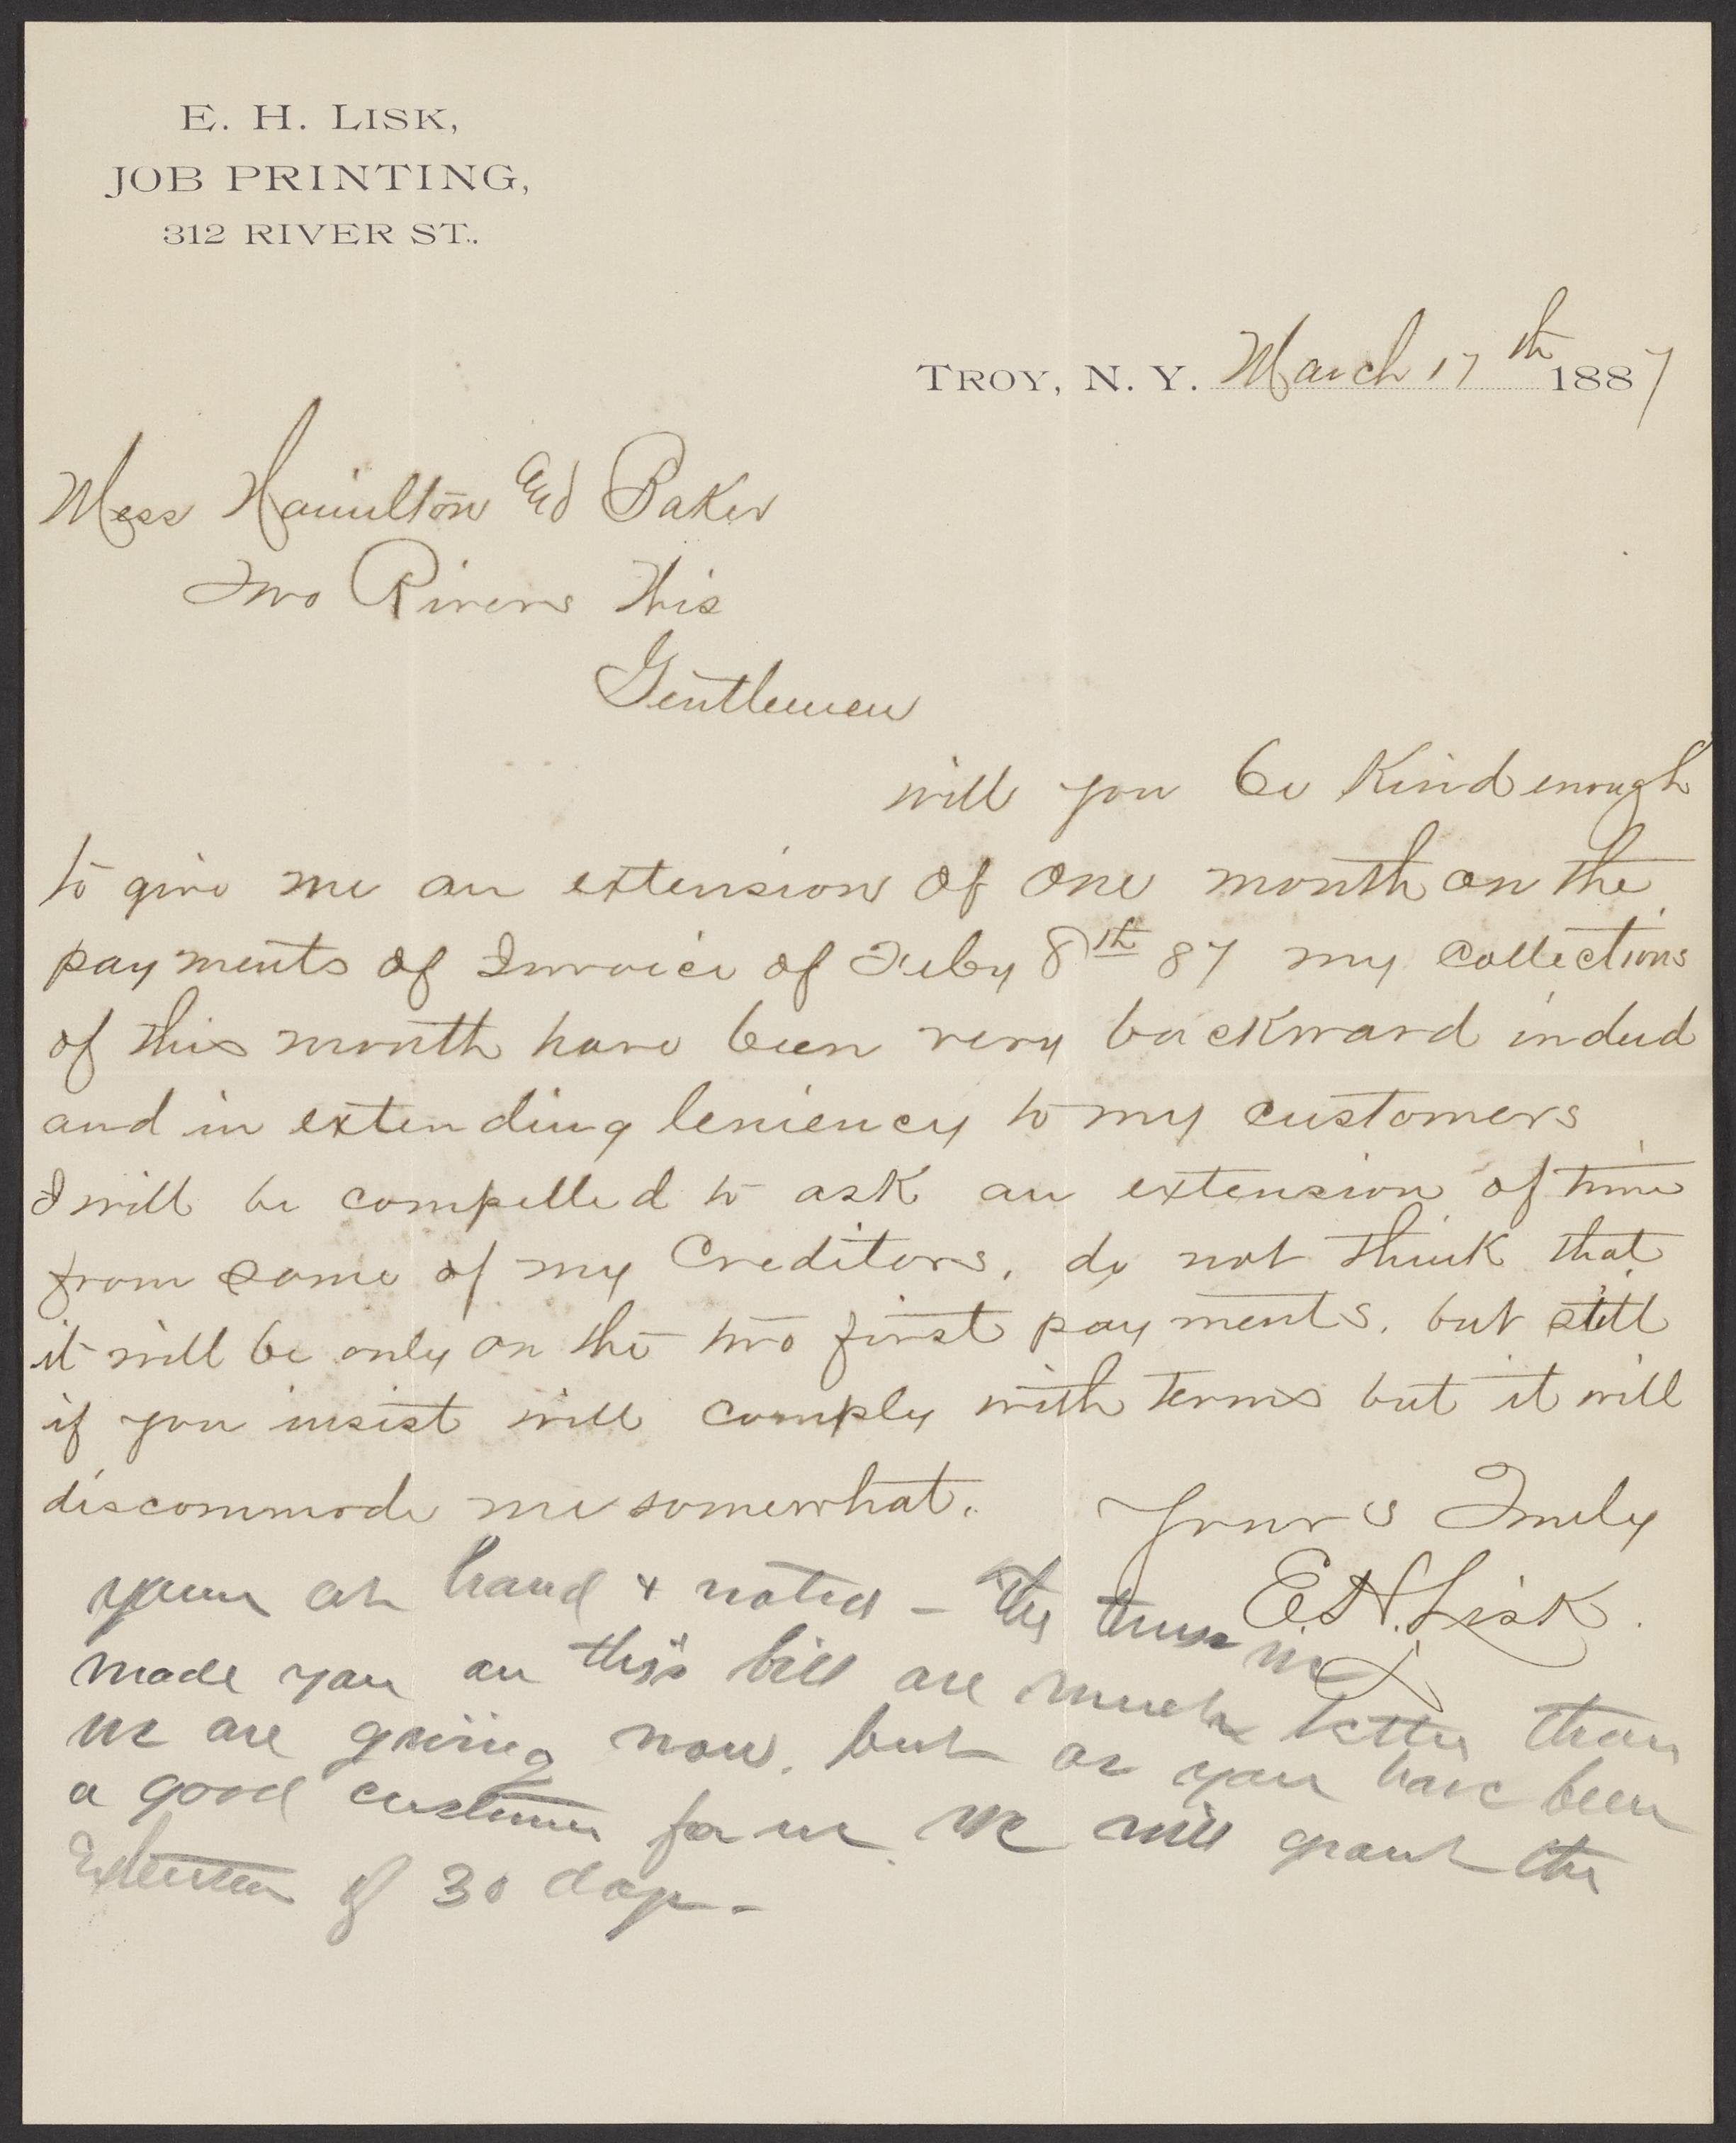 E. H. LISK,
JOB PRINTING,
312 RIVER ST.
TROY, N. Y. March 17th 1887
Mess Hamilton and Baker
Two Rivers Wis
Gentlemen
will you be Kind enough
to give me an extension of one month on the
payments of Invoice of Feby 8th 87 my collections
of this month have been very backward indeed
and in extending leniency to my customers
I will be compelled to ask an extension of time
from some of my Creditors, do not think that
it will be only on the two first payments, but still
if you insist will comply with terms but it will
discommode me somewhat.
Yours Truly
E. H. Lisk.
yours at hand & noted - The terms we
made you on this bill are much better than
we are giving now, but as you have been
a good customer for us we will grant the
Extension of 30 days -